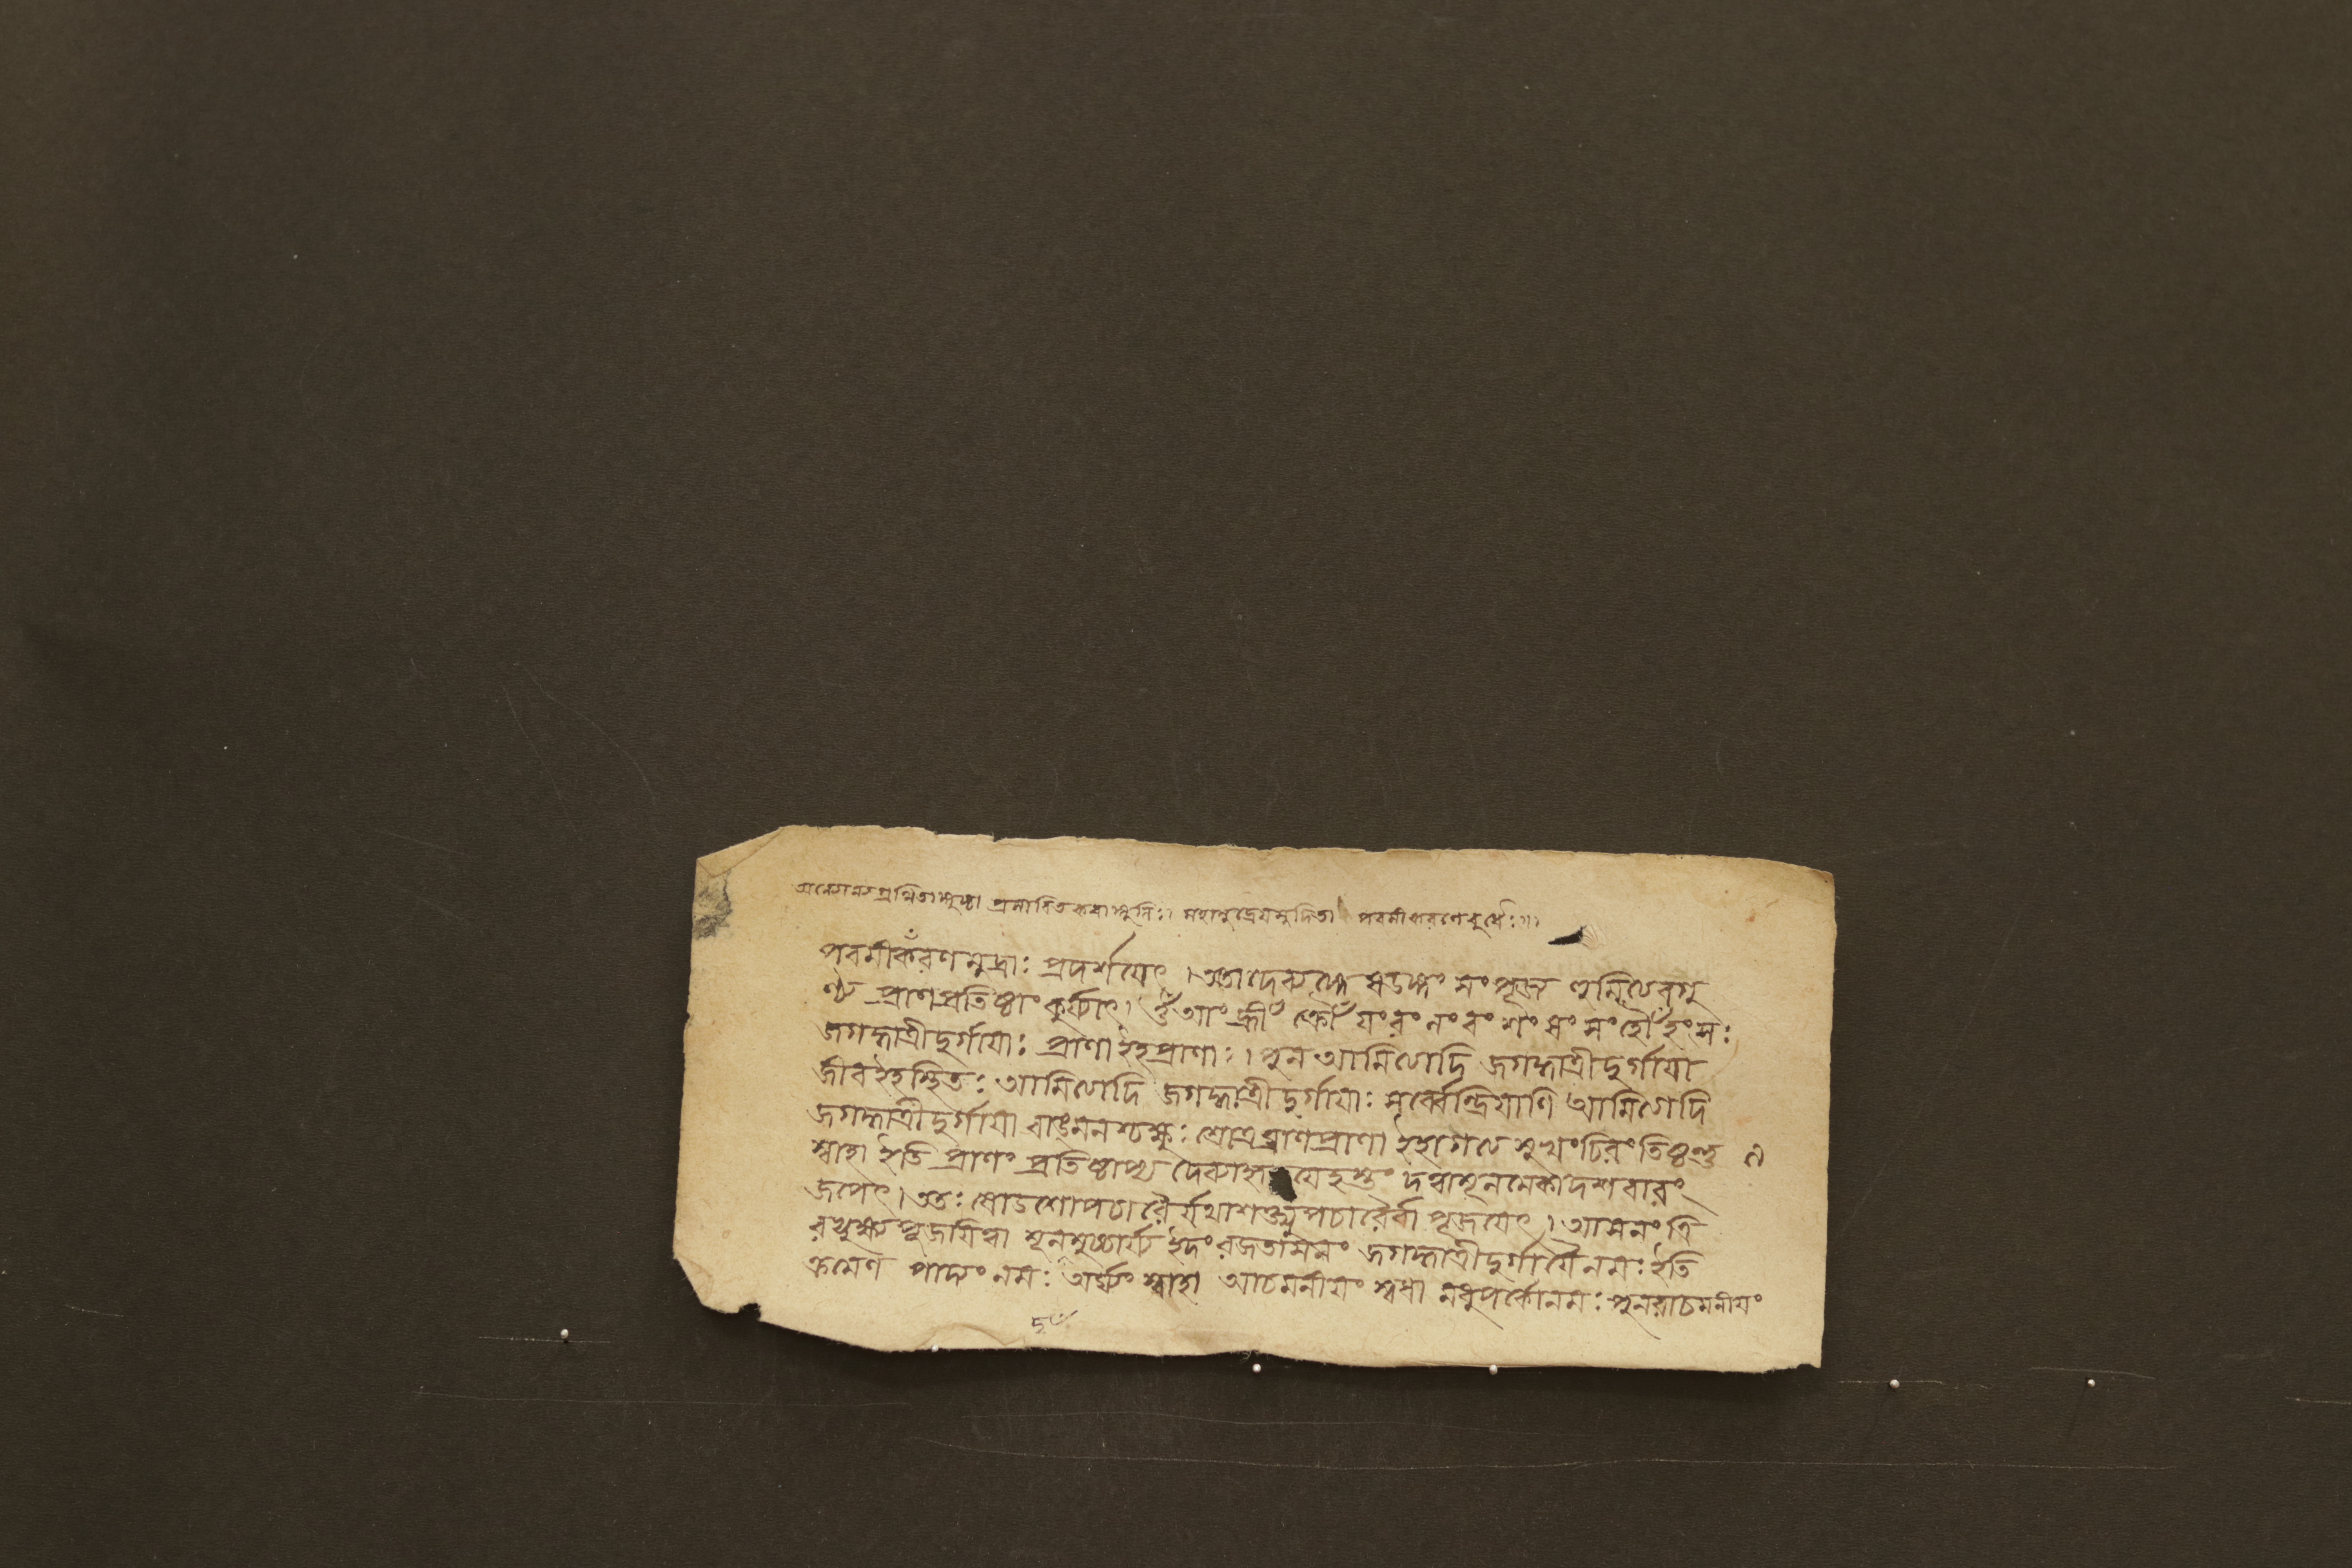 অন্যোন্যগ্রথিতাঙ্গুষ্ঠা প্রসারিতকরাঙ্গুলিঃ। মহামুদ্রেয়মুদিতা পরমীকরণেবুধৈঃ॥
পরমীকরণমুদ্রাঃ প্রদর্শয়েৎ। ততোদেব্যঙ্গে ষডঙ্গং সংপূজ্য
প্রাণপ্রতিষ্ঠাং কুর্য্যাৎ। ওঁ আং হ্রীঁ ক্রোঁ যং রং লং বং শং ষং সং হৌঁ হংসঃ
জগদ্ধাত্রীদুর্গায়াঃ প্রাণা ইহপ্রাণাঃ। পুন আমিত্যেদি জগদ্ধাত্রীদুর্গায়া
জীবইহস্থিতঃ আমিত্যেদি জগদ্ধাত্রীদুর্গায়াঃ সর্ব্বেন্দ্রিয়াণি আমিত্যেদি
জগদ্ধাত্রীদুর্গায়া বাঙ্মনশ্চক্ষুঃ শ্রোত্রঘ্রাণপ্রাণা ইহাগত্য সুখং চিরং তিষ্ঠন্তু
স্বাহা ইতি প্রাণং প্রতিষ্ঠাপ্য হস্তং দত্বামূলমেকাদশবারং
জপেৎ। ততঃ ষোডশোপচারৈর্যথাশক্ত্যুপচারৈর্বা পূজয়েৎ। আসনং ত্রি
রভ্যুক্ষ্য পূজয়িত্বা মূলমুচ্চার্য্য ইদং রজতাসনং জগদ্ধাত্রীদুর্গায়ৈ নমঃ ইতি
ক্রমেণ পাদ্যং নমঃ অর্ঘ্যং স্বাহা আচমনীয়ং স্বধা মধুপর্কোনমঃ পুনরাচমনীয়ং